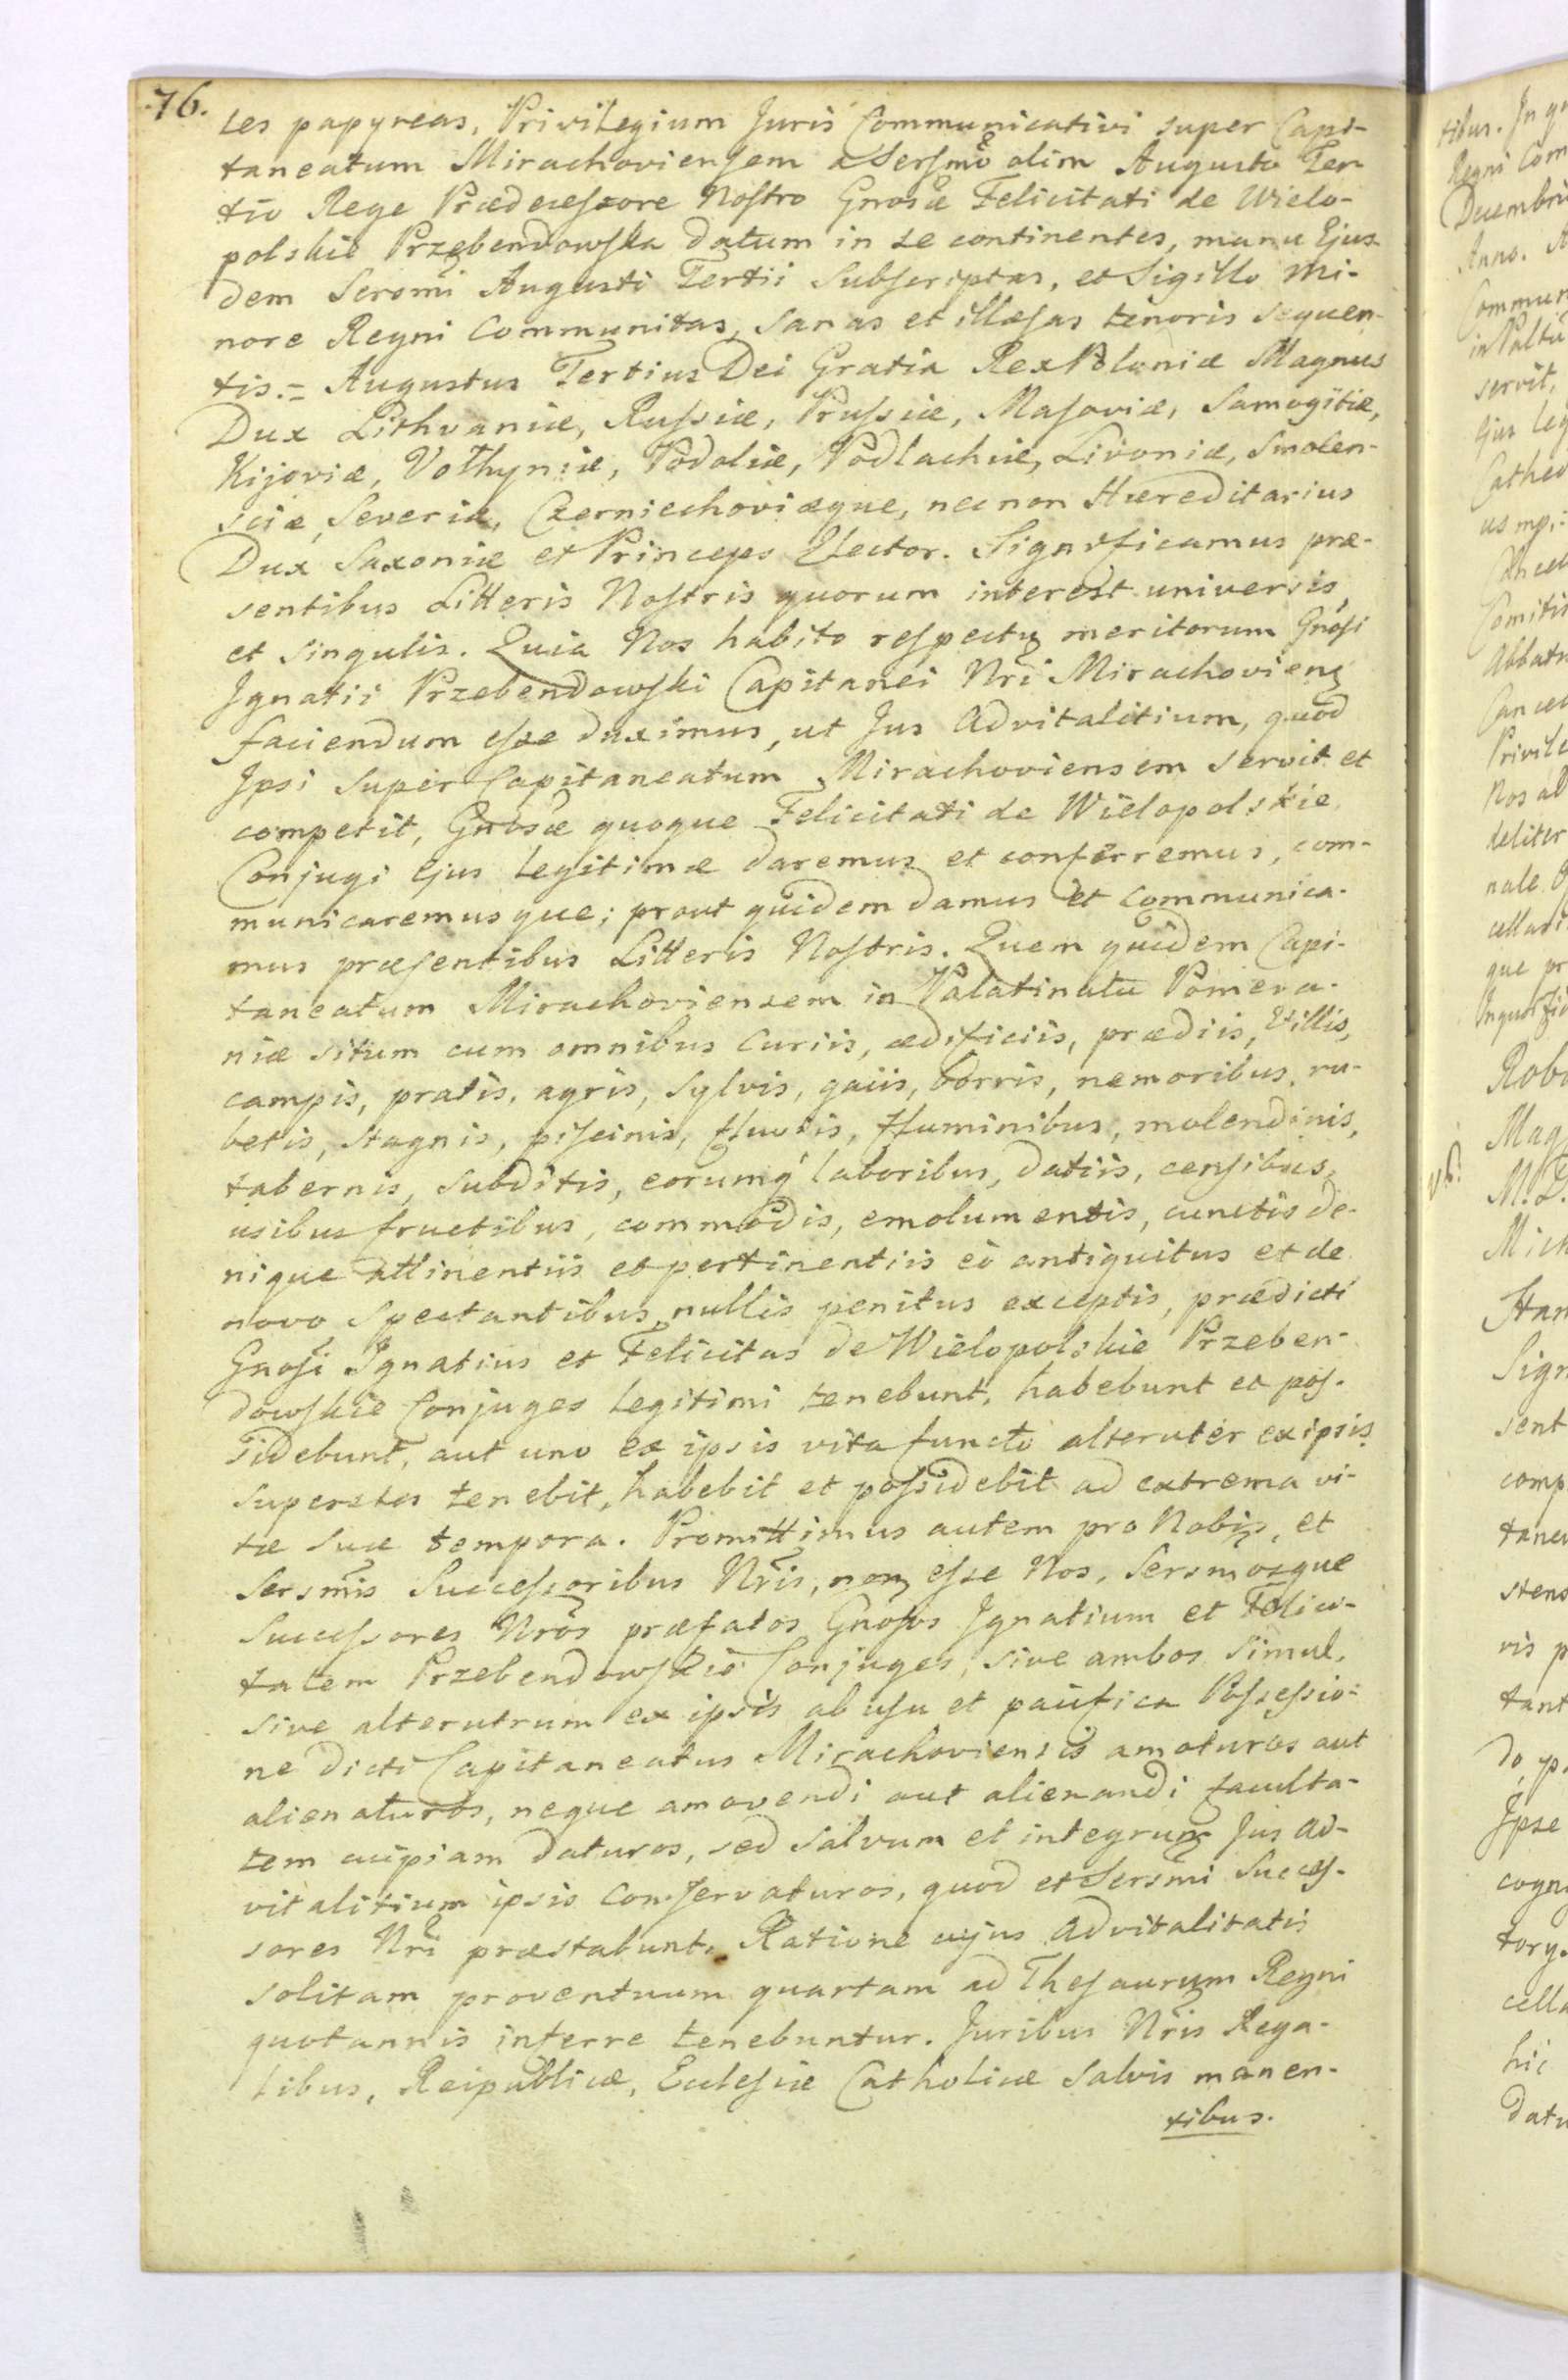 76.
tes papyreas, Privilegium Juris Communicativi super Capi-
taneatum Mirachoviensem a Sersmo olim Augusto Ter-
tio Rege Prædecessore Nostro Gnosæ Felicitati de Wielo-
polskie Przebendowska datum in se continentes, manu Ejus-
dem Sersmi Augusti Tertii Subscriptas, et Sigillo Mi-
nore Regni Communitas, sanas et illæsas tenoris sequen-
tis.= Augustus Tertius Dei Gratia Rex Poloniæ Magnus
Dux Lithvaniæ, Russiæ, Prussiæ, Masoviæ, Samogitiæ,
Kijoviæ, Volhyniæ, Podoliæ, Podlachiæ, Livoniæ, Smolen-
sciæ, Severiæ, Czerniechoviæque, necnon Hæreditarius
Dux Saxoniæ et Princeps Elector. Significamus præ-
sentibus Litteris Nostris quorum interest universis,
et singulis. Quia Nos habito respectu meritorum Gnosi
Ignatii Przebendowski Capitanei Nri Mirachovien
faciendum esse duximus, ut Jus Advitalitium, quod
Ipsi super Capitaneatum Mirachoviensem servit et
competit, Gnosæ quoque Felicitati de Wielopolskie
Conjugi Ejus legitimæ daremus et conferremus, com-
municaremusque; prout quidem damus et communica-
mus præsentibus Litteris Nostris. Quem quidem Capi-
taneatum Mirachoviensem in Palatinatu Pomera-
niæ situm cum omnibus Curiis, ædificiis, prædiis, Villis,
campis, pratis, agris, sylvis, gaiis, borris, nemoribus, ru-
betis, stagnis, piscinis, fluviis, fluminibus, molendinis,
tabernis, subditis, eorumq' laboribus, datiis, censibus,
usibus fructibus, commodis, emolumentis, cunctis de-
nique attinentiis et pertinentiis eò antiquitus et de
novo spectantibus, nullis penitus exceptis, prædicti
Gnosi Ignatius et Felicitas de Wielopolskie Przeben-
dowskie Conjuges legitimi tenebunt, habebunt et pos-
sidebunt, aut uno ex ipsis vita functo alteruter ex ipsis
superstes tenebit, habebit et possidebit ad extrema vi-
tæ suæ tempora. Promittimus autem pro Nobis, et
Sersmis Successoribus Nris, non esse Nos, Sersmosque
Successores Nros præfatos Gnosos Ignatium et Felici-
tatem Przebendowskie Conjuges, sive ambos simul,
sive alterutrum ex ipsis ab usu et paifica Possessio-
ne dicti Capitaneatus Mirachoviensis amoturos aut
alienaturos, neque amovendi aut alienandi faculta-
tem cuipiam daturos, sed salvum et integrum Jus Ad-
vitalitium ipsis conservaturos, quod et Sersmi Succes-
sores Nri præstabunt. Ratione cujus Advitalitatis
solitam proventuum quartam ad Thesaurum Regni
quotannis inferre tenebuntur. Juribus Nris Rega-
libus, Reipublicæ, Ecclesiæ Catholicæ salvis manen-
tibus.